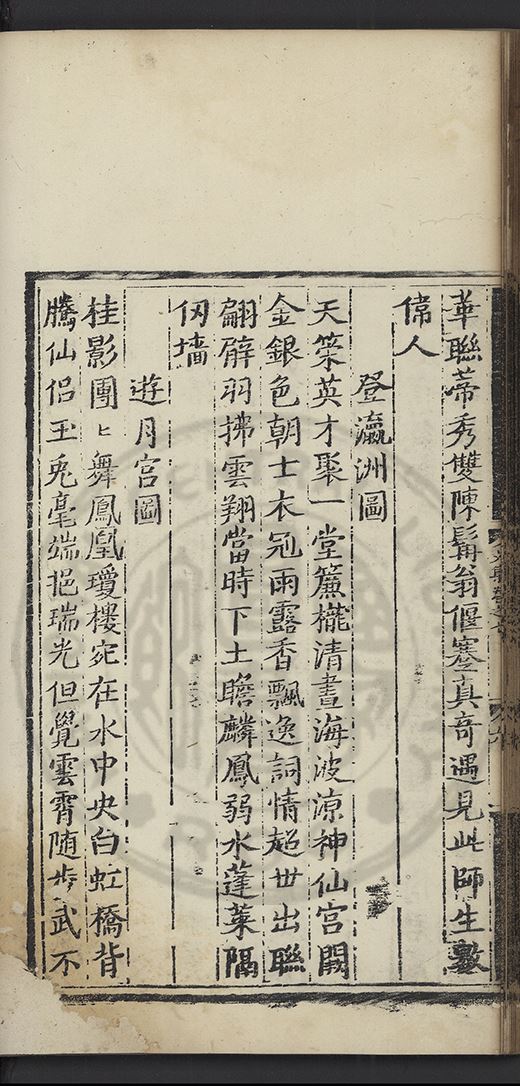 華聯蒂秀雙陳髯翁偃蹇真奇遇見此師生數
偉人
登瀛洲圖
天策英才聚一堂簾櫳清晝海波涼神仙宮闕
金銀色朝士衣冠雨露香飄逸詞情超世出聯
翩辭羽拂雲翔當時下土瞻麟鳳弱水蓬萊隔
仭墻
遊月宮圖
桂影團〻舞鳳凰瓊樓宛在水中央白虹橋背
騰仙侣玉兎毫端挹瑞光但覺雲霄随步武不